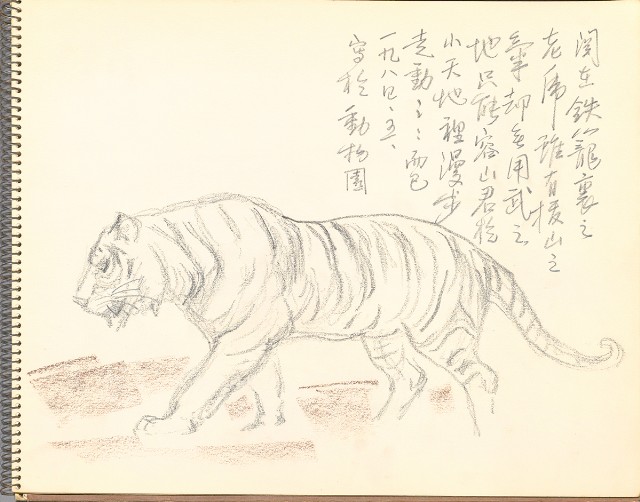 関在鉄籠裏之
老虎雖有拔山之
氣却無用武之
地只能容山君於
小天地裡漫步
走動之々而已
一九八〇、五、
寫於動物園